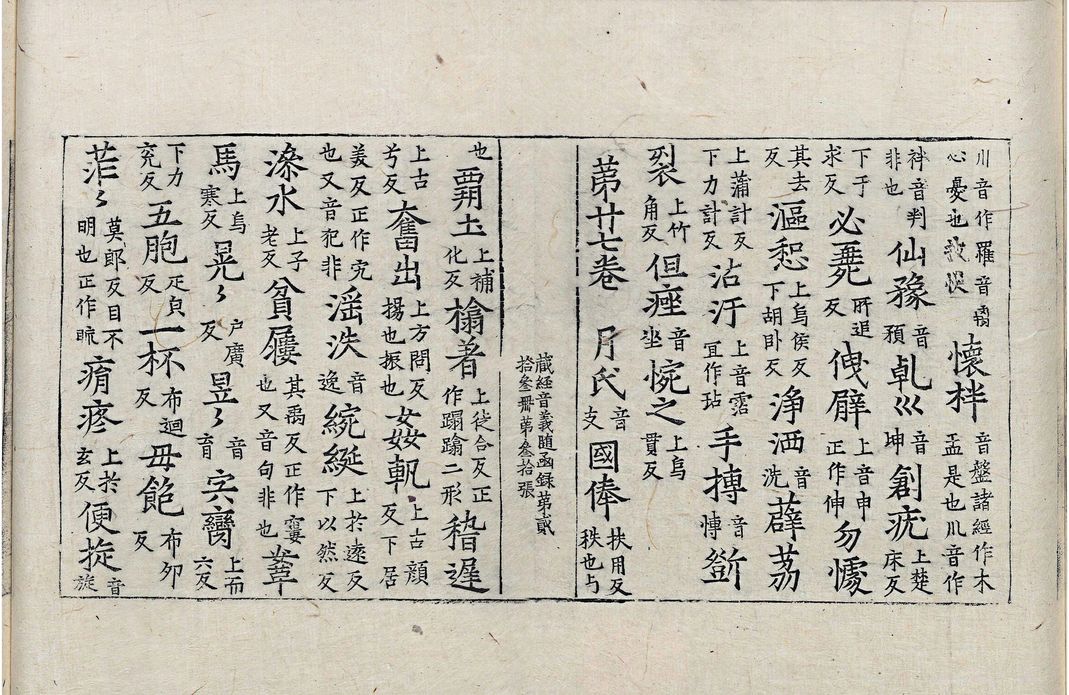 川音作羅音心憂也懷柈音盤諸經作木盂是也川音作
音判非也仙豫音預乹巛音坤創疣上楚床反
下于求反必反上音申正作伸勿懅
其去反漚惒上烏侯反下胡卧反净洒音洗薜荔
上蒲計反下力計反沾汙上音霑冝作玷手摶音慱斵
裂上竹角反但痤音坐惋之上烏貫反
苐廿七卷 月氏音支國俸扶用反秩也与
藏經音義随函録第貳
拾叁冊第叁拾張
也覇土上補化反榻著上徒合反正作蹋蹹二形稽遲
上古兮反奮出上方問反揚也振也姦軓上古顔反下居
美反正作宄也又音犯非滛泆音逸綩綖上於遠反下以然反
澡水上子老反貧屨其禹反正作窶也又音句非也鞌
馬上烏寒反晃〻户廣反昱〻音育宍臠上而六反
下力兖反五胞疋皃反一杯布迴反毋飽布卯反
茫〻莫郎反目不明也正作痟疼上於玄反便掟音旋